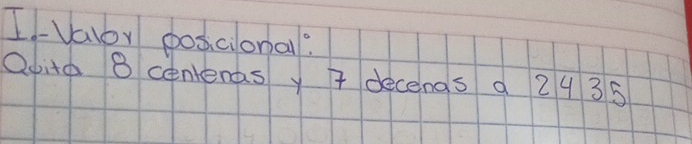 I.- Valor posicional:
Quita 8 centenas y 7 decenas a 2435